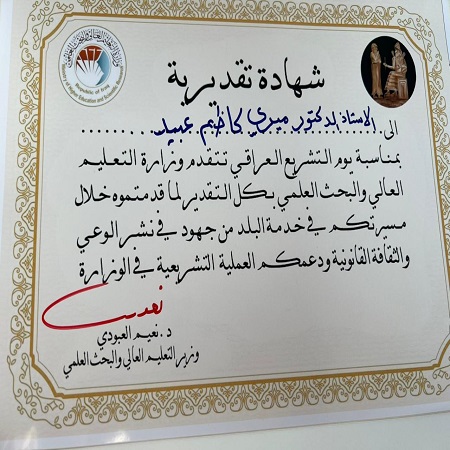 شهادة تقديرية
الى: الاستاذ الدكتور ميري كاظم عبيد
بمناسبة يوم التشريع العراقي تتقدم وزارة التعليم
العالي والبحث العلمي بكل التقدير لما قدمتموه خلال
مسيرتكم في خدمة البلد من جهود في نشر الوعي
والثقافة القانونية ودعمكم العملية التشريعية في الوزارة
د. نعيم العبودي
وزير التعليم العالي والبحث العلمي
Republic of Iraq
Ministry of Higher Education and Scientific Research